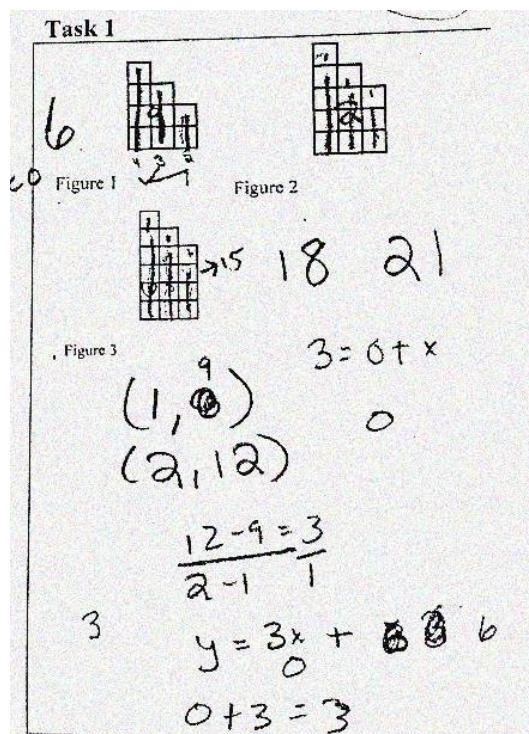 Task 1
6
9
2
4 3 2
Figure 1
Figure 2
→15
18 21
Figure 3
3 = 0 + x
9
(1, )
0
(2, 12)
12 - 9 = 3
2 - 1 1
3
y = 3x + 6
0
0 + 3 = 3